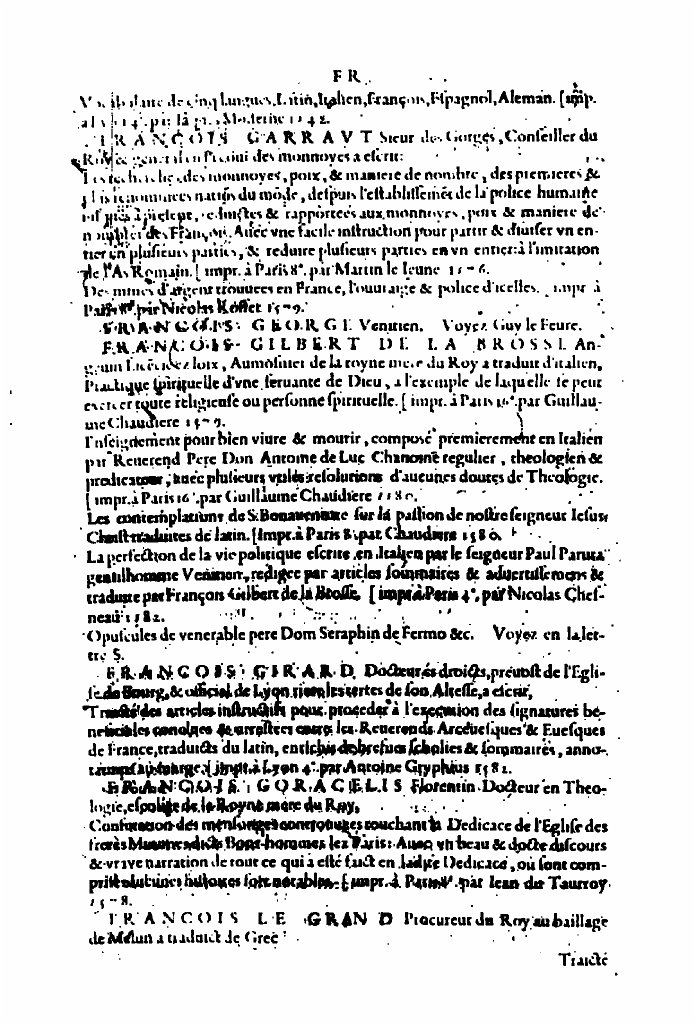 FR
de cinq langues, Latin, Italien, François, Espagnol, Aleman. [imp.
à par Moderne 1542.
FRANCOIS GARRAVT Sieur des Gorges, Conseiller du
Roy & general en des monnoyes a escrit:
Les recherches des monnoyes, poix, & maniere de nombre, des premieres &
plus renommees natiõs du mõde, despuis l'establissemẽt de la police humaine
à present, reduictes & rapportees aux monnoyes, poix & maniere de
nombrer des François. Auec vne facile instruction pour partir & diuiser vn en-
tier en plusieurs parties, & reduire plusieurs parties en vn entier: à l'imitation
de l'As Romain. [impr. à Paris 8°. par Martin le Ieune 1576.
Des mines d'argent trouuees en France, l'ouuraige & police d'icelles. impr à
Paris par Nicolas Roffet 1579.
FRANCOIS GEORGE Venitien. Voyez Guy le Feure.
FRANCOIS GILBERT DE LA BROSSE An-
geuin Licencié ez loix, Aumosnier de la royne mere du Roy a traduit d'italien,
Practique spirituelle d'vne seruante de Dieu, a l'exemple de laquelle se peut
exercer toute religieuse ou personne spirituelle. [impr. à Paris 16°. par Guillau-
me Chaudiere 1579.
Enseignement pour bien viure & mourir, composé premierement en Italien
par Reuerend Pere Don Antoine de Luc Chanoine regulier, theologien &
predicateur, auec plusieurs vtiles resolutions d'aucunes doutes de Theologie.
[impr. à Paris 16°. par Guillaume Chaudiere 1580.
Les contemplations de S. Bonauenture sur la passion de nostre seigneur Iesus
Christ traduites de latin. [Impr. à Paris 8°. par Chaudiere 1580.
La perfection de la vie politique escrite en Italien par le seigneur Paul Paruta
gentilhomme Venitien, redigee par articles sommaires & aduertissemens &
traduite par François Gilbert de la Brosse. [impr. à Paris 4°. par Nicolas Ches-
neau 1582.
Opuscules de venerable pere Dom Seraphin de Fermo &c. Voyez en la let-
tre S.
FRANCOIS GIRARD Docteur és droicts, preuost de l'Egli-
se de Bourg, & official de Lyon riere les terres de son Altesse, a escrit,
Traicté des articles instructifs pour proceder à l'execution des signatures be-
neficiales & arrestees entre les Reuerends Arceuesques & Euesques
de France, traduicts du latin, enrichis de brefues scholies & sommaires, anno-
tations au marge. [impr. à Lyon 4°. par Antoine Gryphius 1582.
FRANCOIS GORACELIS Florentin Docteur en Theo-
logie, de la Royne mere du Roy,
Confutation des mensonges touchant la Dedicace de l'Eglise des
freres dicts Bons-hommes lez Paris: Auec vn beau & docte discours
& vraye narration de tout ce qui à esté faict en ladite Dedicace, où sont com-
prises histoires fort notables. [impr. à Paris par Iean du Taurroy
1578.
FRANCOIS LE GRAND Procureur du Roy au baillage
de Melun a traduict de Grec
Traicté